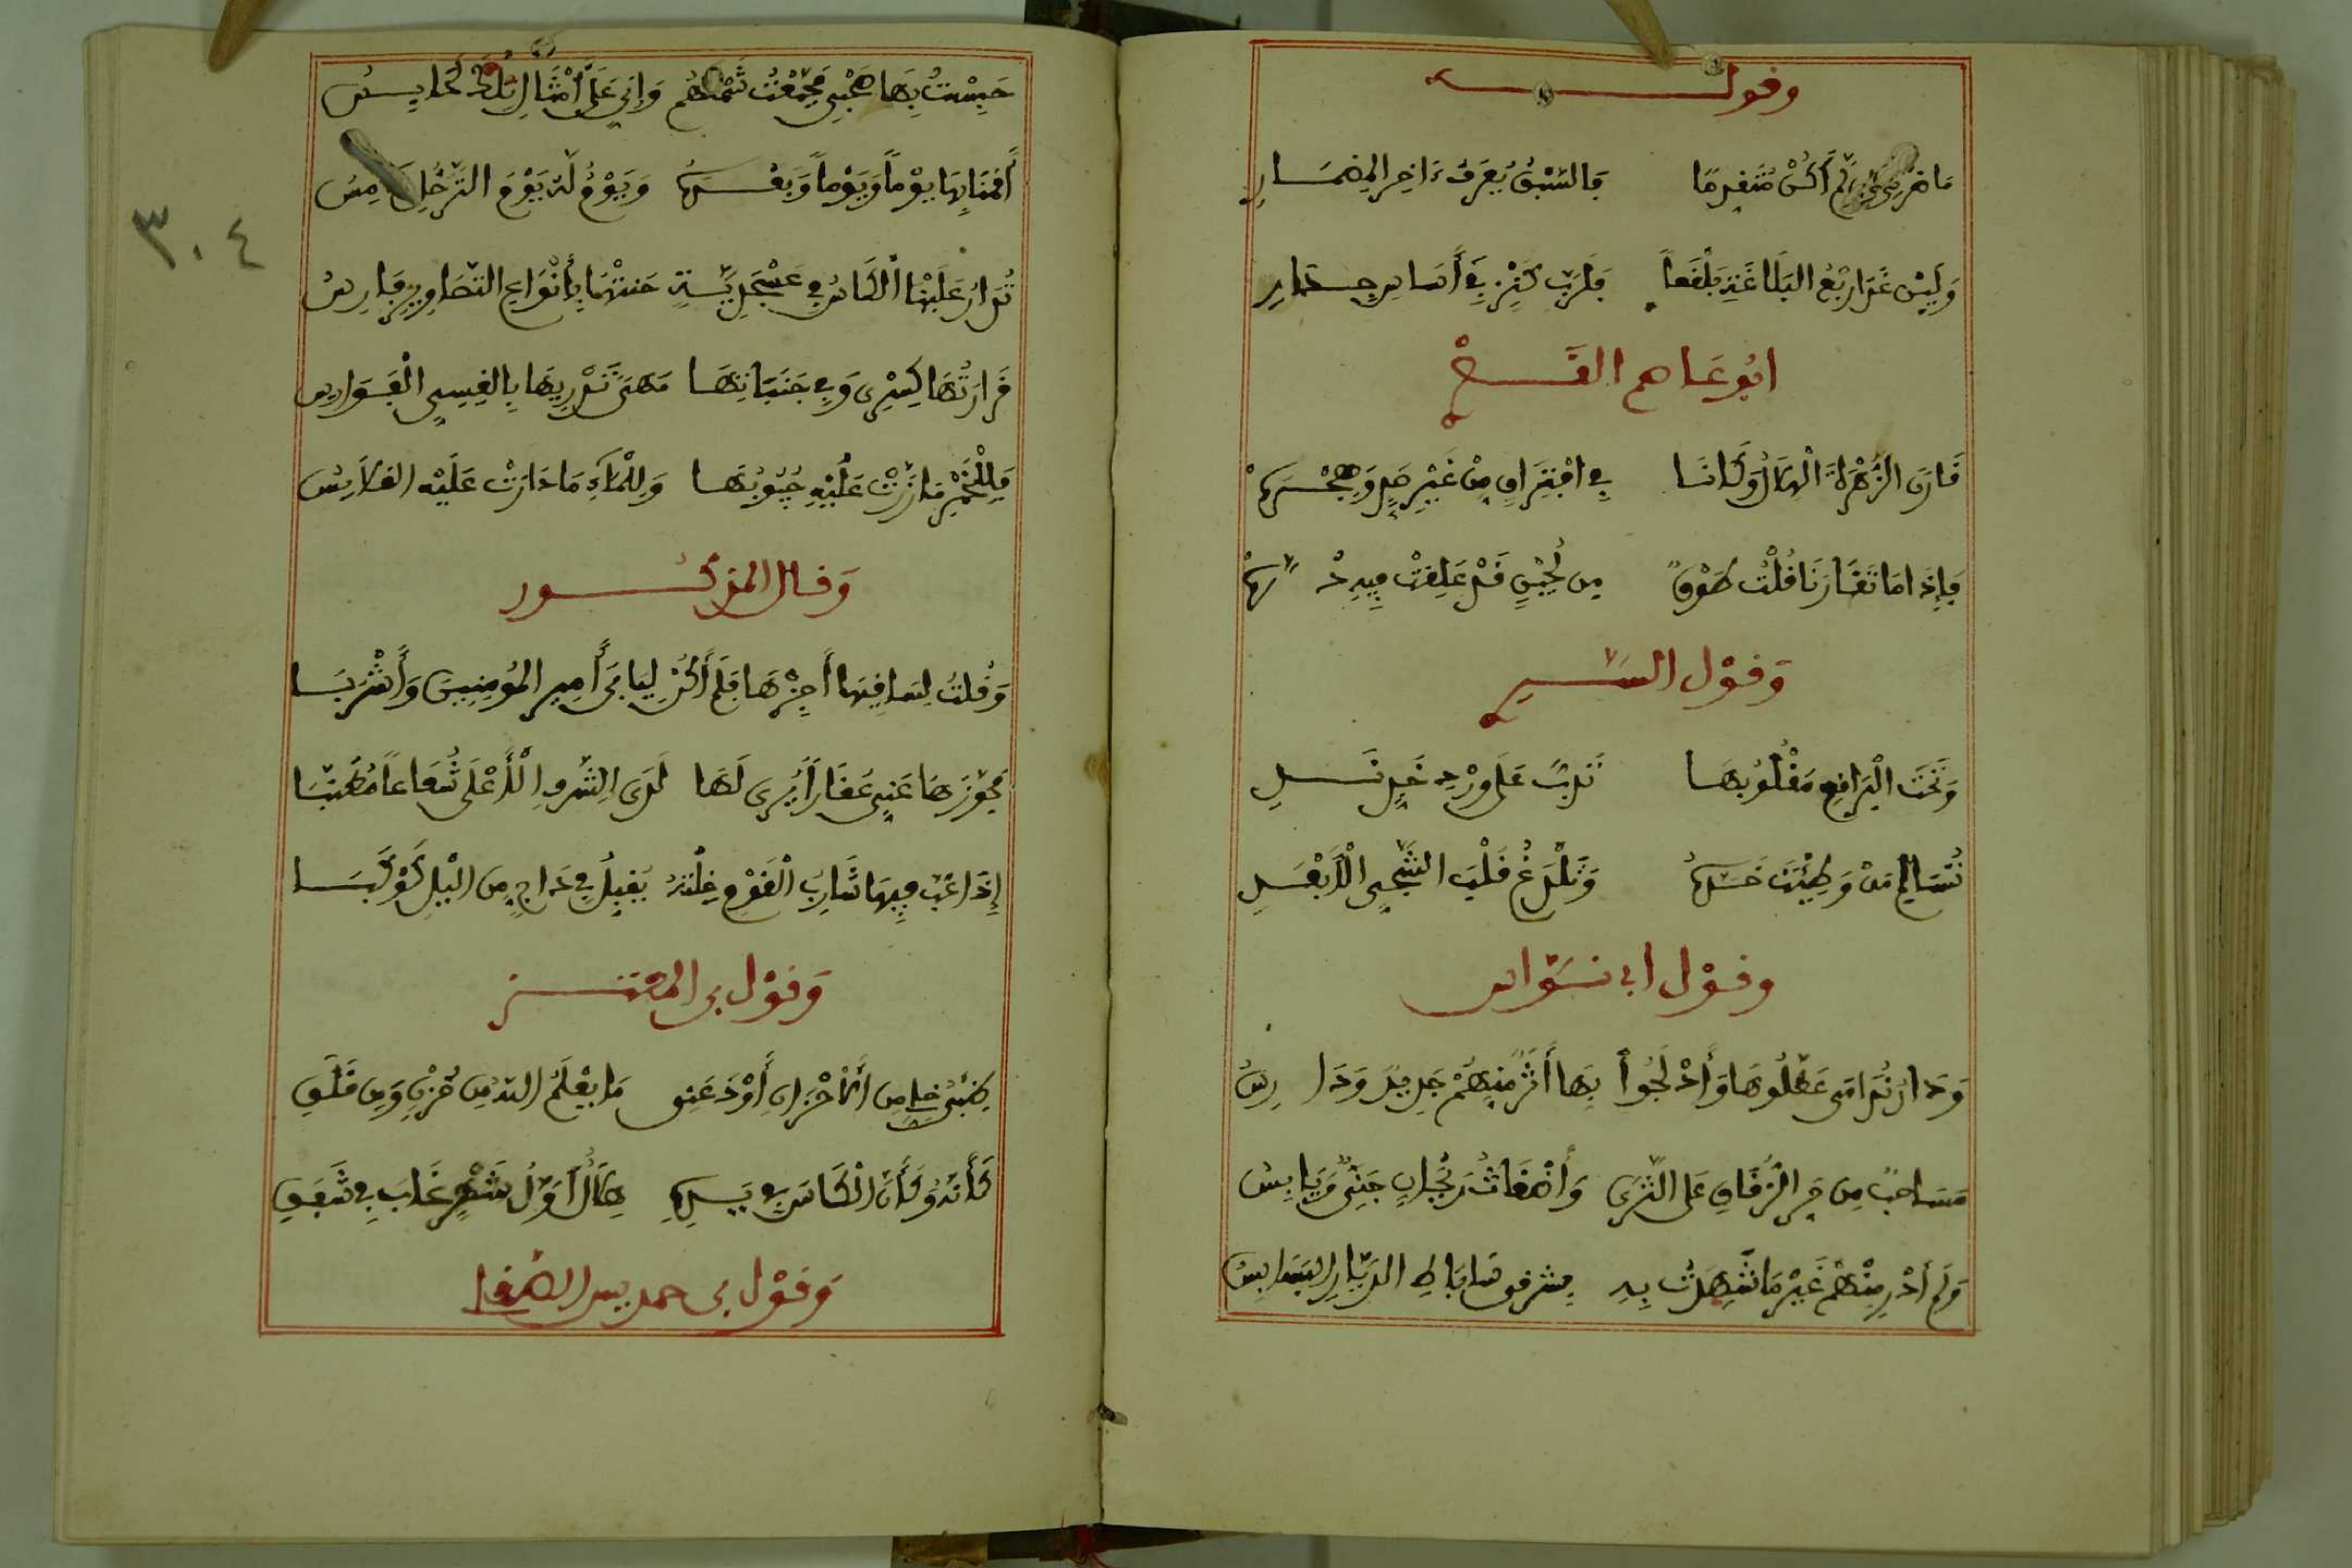 وقوله
ما ضرني لم أكن متقدما فالسبق يعرف ءاخر المضمار
ولئن غدا ربع البلاغة بلقعا فلرب كنز في أساس جدار
ابو عاصم
قارن الزهرة الهلال وكانا في افتراق من غير صد وهجره
فإذا ما تقارنا قلت طوق من لجين قد علقت فيه دره
وقول السري
وتحت البراقع مقلوبها تدب على ورد خد ندي
تسالم من وطئت خده وتلدغ قلب الشجي الأبعد
وقول ابي نواس
ودار ندامى عطلوها وأدلجوا بها أثر منهم جديد ودارس
مساحب من جر الزقاق على الثرى وأضغاث ريحان جني ويابس
ولم أدر منهم غير ما شهدت به بشرقي ساباط الديار البسابس
حبست بها صحبي فجمعت شملهم وإني على أمثال تلك لحابس
أقمنا بها يوما ويوما وبعده ويوم له يوم الترحل خامس
تدار علينا الكاس في عسجدية حبتها بأنواع التصاوير فارس
قرارتها كسرى وفي جنباتها مهى تدريها بالقسي الفوارس
فللخمر ما زرت عليه جيوبها وللماء ما دارت عليه القلانس
وقال المذكور
وقلت لساقيها أجزها فلم أكن ليأبى أمير المؤمنين وأشربا
فجوزها عني عقارا يرى لها لدى الشرف الأعلى شعاعا مطنبا
إذا عب فيها شارب القوم خلته يقبل في داج من الليل كوكبا
وقول بن المعتز
ما بعلم الله من حزن ومن قلق
كأنه وكأن الكاس في يده هلال أول شهر غاب في شفق
وقول بن حمديس الصقلي
٣٠٤